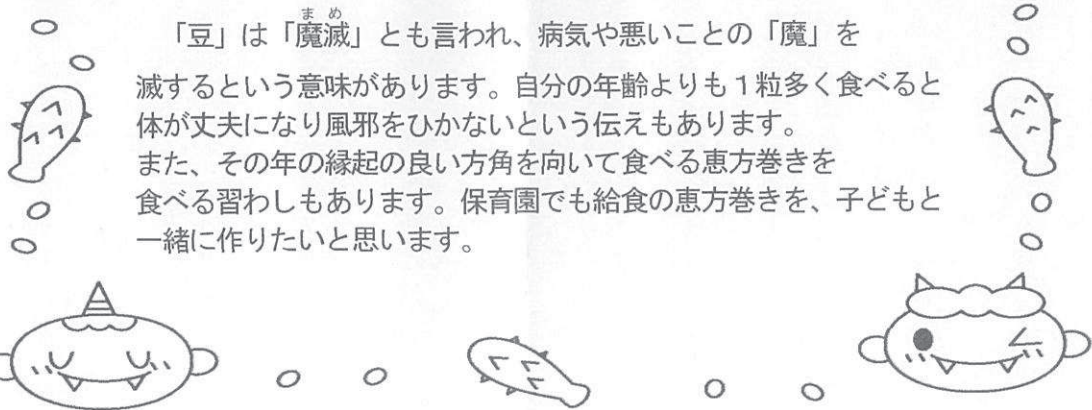 「豆」は「魔滅」とも言われ、病気や悪いことの「魔」を
まめ
滅するという意味があります。自分の年齢よりも1粒多く食べると
体が丈夫になり風邪をひかないという伝えもあります。
また、その年の縁起の良い方角を向いて食べる恵方巻きを
食べる習わしもあります。保育園でも給食の恵方巻きを、子どもと
一緒に作りたいと思います。